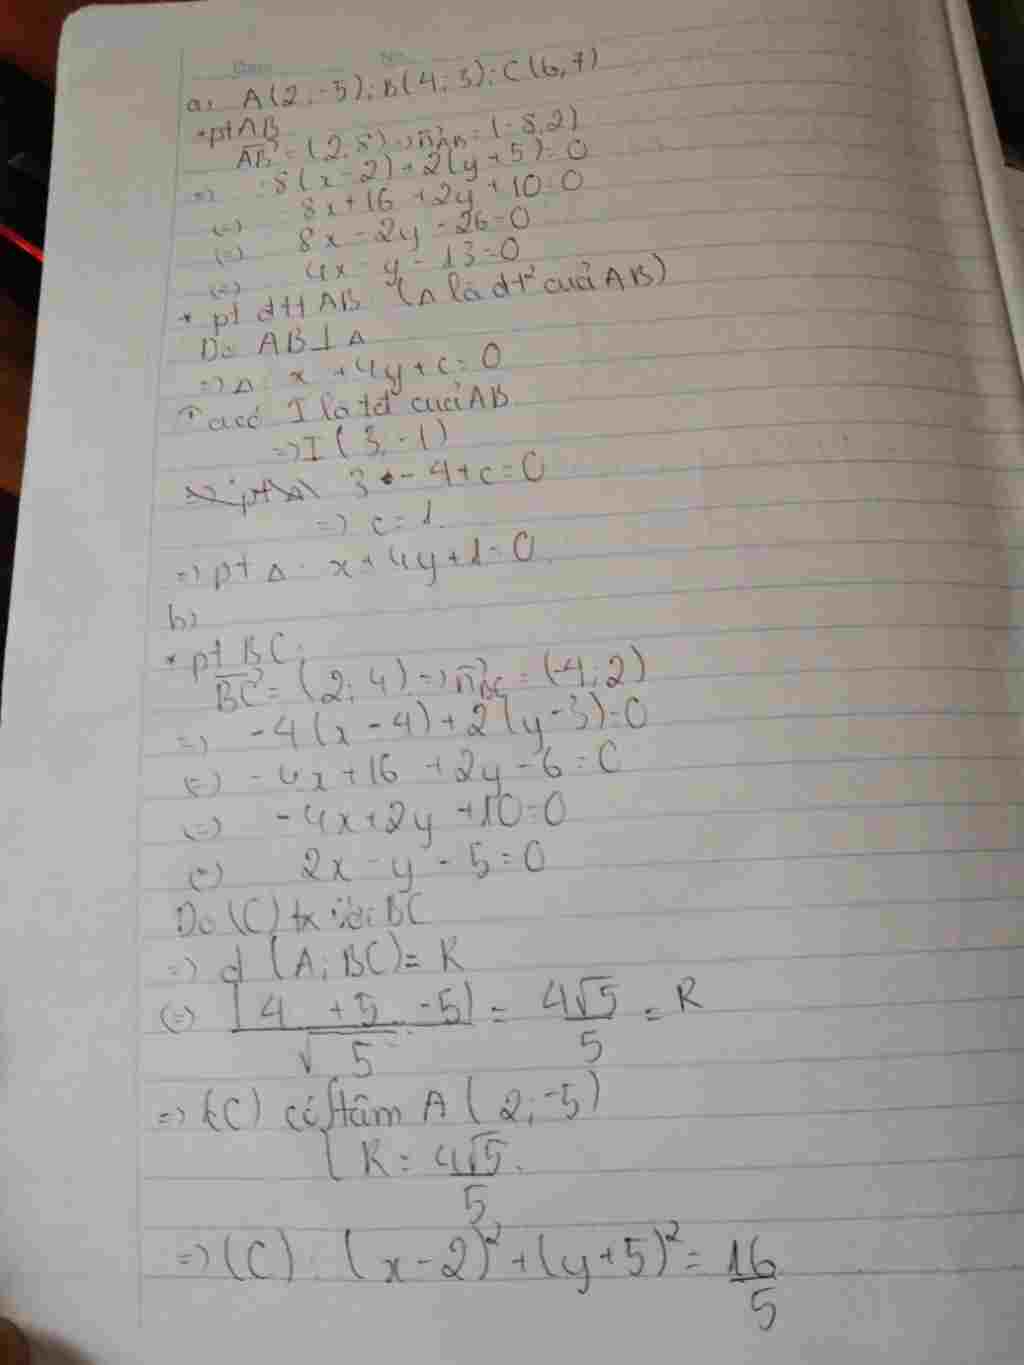 a, A(2;-5); B(4;3); C(6,7)
*pt AB
AB = (2,8) => n AB = (-8,2)
=> -8(x-2)+2(y+5)=0
(=) 8x+16+2y+10=0
(=) 8x-2y-26=0
(=) 4x-y-13=0
* pt đtt AB (Δ là đt² của AB)
Do AB⊥Δ
=> Δ: x+4y+c=0
Ta có I là tđ của AB
=> I(3,-1)
3 - 4+c=0
=> c=1
=> pt Δ: x+4y+1=0
b,
* pt BC:
BC = (2;4) => n BC = (-4;2)
=> -4(x-4)+2(y-3)=0
(=) -4x+16+2y-6=0
(=) -4x+2y+10=0
(=) 2x-y-5=0
Do (C) tx với BC
=> d(A;BC)=R
(=) |4+5-5|/√5 = 4√5/5 = R
=> (C) có tâm A(2;-5)
R = 4√5/5
=> (C): (x-2)²+(y+5)² = 16/5